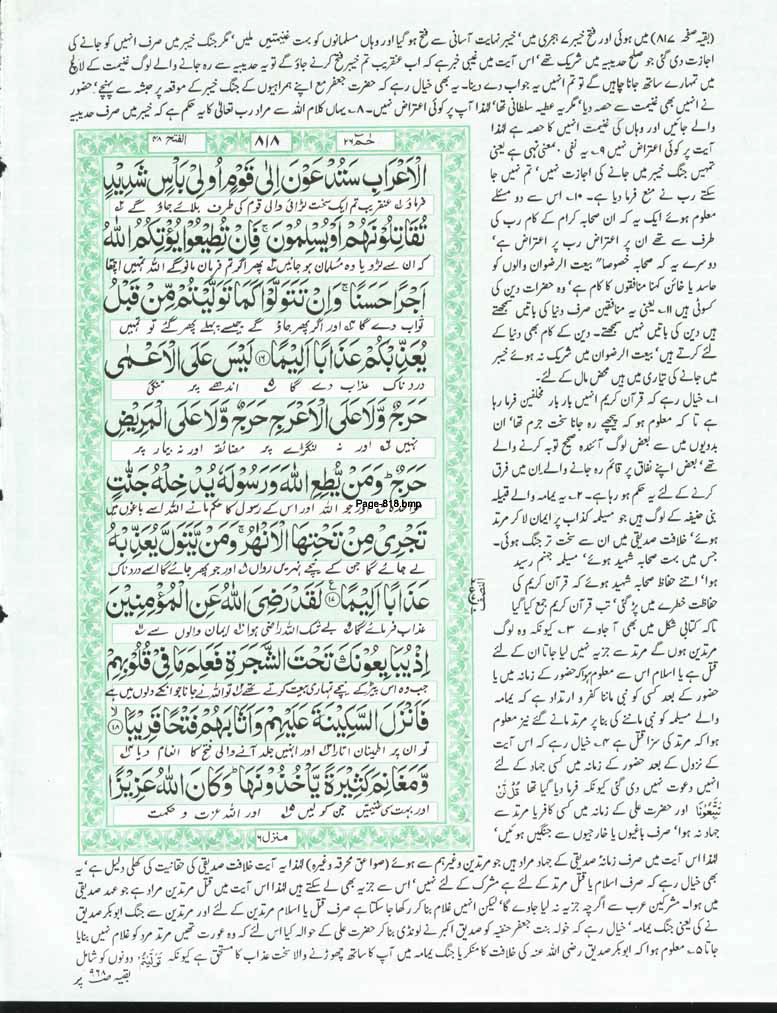 (بقیہ صفحہ ۸۱۷) میں ہوئی اور فتح خیبر ۷ ہجری میں' خیبر نہایت آسانی سے فتح ہو گیا اور وہاں مسلمانوں کو بہت غنیمتیں ملیں' مگر جنگ خیبر میں صرف انہیں کو جانے کی
اجازت دی گئی جو صلح حدیبیہ میں شریک تھے' اس آیت میں غیبی خبر ہے کہ اب عنقریب تم خیبر فتح کرنے جاؤ گے تو یہ حدیبیہ سے رہ جانے والے لوگ غنیمت کے لالچ
میں تمہارے ساتھ جانا چاہیں گے تو تم انہیں یہ جواب دے دینا۔ یہ بھی خیال رہے کہ حضرت جعفر مع اپنے ہمراہیوں کے جنگ خیبر کے موقعہ پر حبشہ سے پہنچے' حضور
نے انہیں بھی غنیمت سے حصہ دیا' مگر یہ عطیہ سلطانی تھا' لہٰذا آپ پر کوئی اعتراض نہیں۔ ۸۔ یہاں کلام اللہ سے مراد رب تعالیٰ کا یہ حکم ہے کہ خیبر میں صرف حدیبیہ
والے جائیں اور وہاں کی غنیمت انہیں کا حصہ ہے لہٰذا
آیت پر کوئی اعتراض نہیں ۹۔ یہ نفی ۔ بمعنی نہی ہے یعنی
تمہیں جنگ خیبر میں جانے کی اجازت نہیں' تم نہیں جا
سکتے رب نے منع فرما دیا ہے۔ ۱۰۔ اس سے دو مسئلے
معلوم ہوئے ایک یہ کہ ان صحابہ کرام کے کام رب کی
طرف سے تھے ان پر اعتراض رب پر اعتراض ہے'
دوسرے یہ کہ صحابہ خصوصا" بیعت الرضوان والوں کو
حاسد یا خائن کہنا منافقوں کا کام ہے' وہ حضرات دین کی
کسوٹی ہیں ۱۱۔ یعنی یہ منافقین صرف دنیا کی باتیں سمجھتے
ہیں دین کی باتیں نہیں سمجھتے۔ دین کے کام بھی دنیا کے
لئے کرتے ہیں' بیعت الرضوان میں شریک نہ ہوئے خیبر
میں جانے کی تیاری میں ہیں محض مال کے لئے۔
۱۔ خیال رہے کہ قرآن کریم انہیں بار بار مخلفین فرما رہا
ہے تا کہ معلوم ہو کہ پیچھے رہ جانا سخت جرم تھا' ان
بدویوں میں سے بعض لوگ آئندہ صحیح توبہ کرنے والے
تھے' بعض اپنے نفاق پر قائم رہ جانے والے ان میں فرق
کرنے کے لئے یہ حکم ہو رہا ہے۔ ۲۔ یہ یمامہ والے قبیلہ
بنی حنیفہ کے لوگ ہیں جو مسیلمہ کذاب پر ایمان لا کر مرتد
ہوئے' خلافت صدیقی میں ان سے سخت تر جنگ ہوئی۔
جس میں بہت صحابہ شہید ہوئے' مسیلمہ جہنم رسید
ہوا' اتنے حفاظ صحابہ شہید ہوئے کہ قرآن کریم کی
حفاظت خطرے میں پڑ گئی' تب قرآن کریم جمع کیا گیا
تاکہ کتابی شکل میں بھی آ جاوے ۳۔ کیونکہ وہ لوگ
مرتدین ہوں گے مرتد سے جزیہ نہیں لیا جاتا ان کے لئے
قتل ہے یا اسلام اس سے معلوم ہوا کہ حضور کے زمانہ میں یا
حضور کے بعد کسی کو نبی ماننا کفر و ارتداد ہے کہ یمامہ
والے مسیلمہ کو نبی ماننے کی بنا پر مرتد مانے گئے نیز معلوم
ہوا کہ مرتد کی سزا قتل ہے ۴۔ خیال رہے کہ اس آیت
کے نزول کے بعد حضور کے زمانہ میں کسی جہاد کے لئے
انہیں دعوت نہیں دی گئی کیونکہ فرما دیا گیا تھا قُلْ لَّنْ
تَتَّبِعُوْنَا اور حضرت علی کے زمانہ میں کسی کافر یا مرتد سے
جہاد نہ ہوا' صرف باغیوں یا خارجیوں سے جنگیں ہوئیں'
حٰمٓ ۲۶
۸۱۸
الفتح ۴۸
الْاَعْرَابِ سَتُدْعَوْنَ اِلٰى قَوْمٍ اُولِیْ بَاْسٍ شَدِیْدٍ
فرماؤ ل عنقریب تم ایک سخت لڑائی والی قوم کی طرف بلائے جاؤ گے
تُقَاتِلُوْنَهُمْ اَوْ یُسْلِمُوْنَ ۚ فَاِنْ تُطِیْعُوْا یُؤْتِكُمُ اللّٰهُ
کہ ان سے لڑو یا وہ مسلمان ہو جائیں پھر اگر تم فرمان مانو گے اللہ تمہیں اچھا
اَجْرًا حَسَنًا ۚ وَاِنْ تَتَوَلَّوْا كَمَا تَوَلَّیْتُمْ مِّنْ قَبْلُ
ثواب دے گا اور اگر پھر جاؤ گے جیسے پہلے پھر گئے تو تمہیں
یُعَذِّبْكُمْ عَذَابًا اَلِیْمًا ۱۶ لَیْسَ عَلَى الْاَعْمٰى
دردناک عذاب دے گا اندھے پر تنگی
حَرَجٌ وَّلَا عَلَى الْاَعْرَجِ حَرَجٌ وَّلَا عَلَى الْمَرِیْضِ
نہیں اور نہ لنگڑے پر مضائقہ اور نہ بیمار پر
حَرَجٌ ؕ وَمَنْ یُّطِعِ اللّٰهَ وَرَسُوْلَهٗ یُدْخِلْهُ جَنّٰتٍ
اور جو اللہ اور اس کے رسول کا حکم مانے اللہ اسے باغوں میں
Page-818.bmp
تَجْرِیْ مِنْ تَحْتِهَا الْاَنْهٰرُ ۚ وَمَنْ یَّتَوَلَّ یُعَذِّبْهُ
لے جائے گا جن کے نیچے نہریں رواں اور جو پھر جائے گا اسے دردناک
عَذَابًا اَلِیْمًا ۱۷ لَقَدْ رَضِیَ اللّٰهُ عَنِ الْمُؤْمِنِیْنَ
عذاب فرمائے گا بے شک اللہ راضی ہوا ایمان والوں سے
اِذْ یُبَایِعُوْنَكَ تَحْتَ الشَّجَرَةِ فَعَلِمَ مَا فِیْ قُلُوْبِهِمْ
جب وہ اس پیڑ کے نیچے تمہاری بیعت کرتے تھے تو اللہ نے جانا جو انکے دلوں میں ہے
فَاَنْزَلَ السَّكِیْنَةَ عَلَیْهِمْ وَاَثَابَهُمْ فَتْحًا قَرِیْبًا ۱۸
تو ان پر اطمینان اتارا اور انہیں جلد آنے والی فتح کا انعام دیا
وَّمَغَانِمَ كَثِیْرَةً یَّاْخُذُوْنَهَا ؕ وَكَانَ اللّٰهُ عَزِیْزًا
اور بہت سی غنیمتیں جن کو لیں اور اللہ عزت و حکمت
منزل ۶
لہٰذا اس آیت میں صرف زمانہ صدیقی کے جہاد مراد ہیں جو مرتدین وغیرہم سے ہوئے (صواعق محرقہ وغیرہ) لہٰذا یہ آیت خلافت صدیقی کی حقانیت کی کھلی دلیل ہے' یہ
بھی خیال رہے کہ صرف اسلام یا قتل مرتد کے لئے ہے مشرک کے لئے نہیں' اس سے جزیہ بھی لے سکتے ہیں لہٰذا اس آیت میں قتل مرتدین مراد ہے جو عہد صدیقی
میں ہوا۔ مشرکین عرب سے اگرچہ جزیہ نہ لیا جاوے گا' لیکن انہیں غلام بنا کر رکھا جا سکتا ہے صرف قتل یا اسلام مرتدین کے لئے اور مرتدین سے جنگ ابوبکر صدیق
نے کی یعنی جنگ یمامہ' خیال رہے کہ خولہ بنت جعفر حنفیہ کو صدیق اکبر نے لونڈی بنا کر حضرت علی کے حوالہ کیا اس لئے کہ وہ عورت تھیں مرتد مرد کو غلام نہیں بنایا
جاتا ۵۔ معلوم ہوا کہ ابوبکر صدیق رضی اللہ عنہ کی خلافت کا منکر یا جنگ یمامہ میں آپ کا ساتھ چھوڑنے والا سخت عذاب کا مستحق ہے کیونکہ دونوں کو شامل
بقیہ ص ۹۶۸ پر